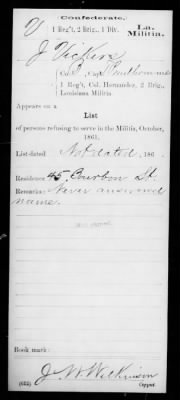 Confederate.
V 1 Reg't, 2 Brig., 1 Div. La. Militia.
J Vickers
Co. , Capt.
1 Reg't, Col. Hernandez, 2 Brig.,
Louisiana Militia.
Appears on a
List
of persons refusing to serve in the Militia, October,
1861.
List dated Not dated, 186 .
Residence 45 Bourbon St.
Remarks: Never answered
name.
Book mark:
J. W. Wilkinson
(632) Copyist.